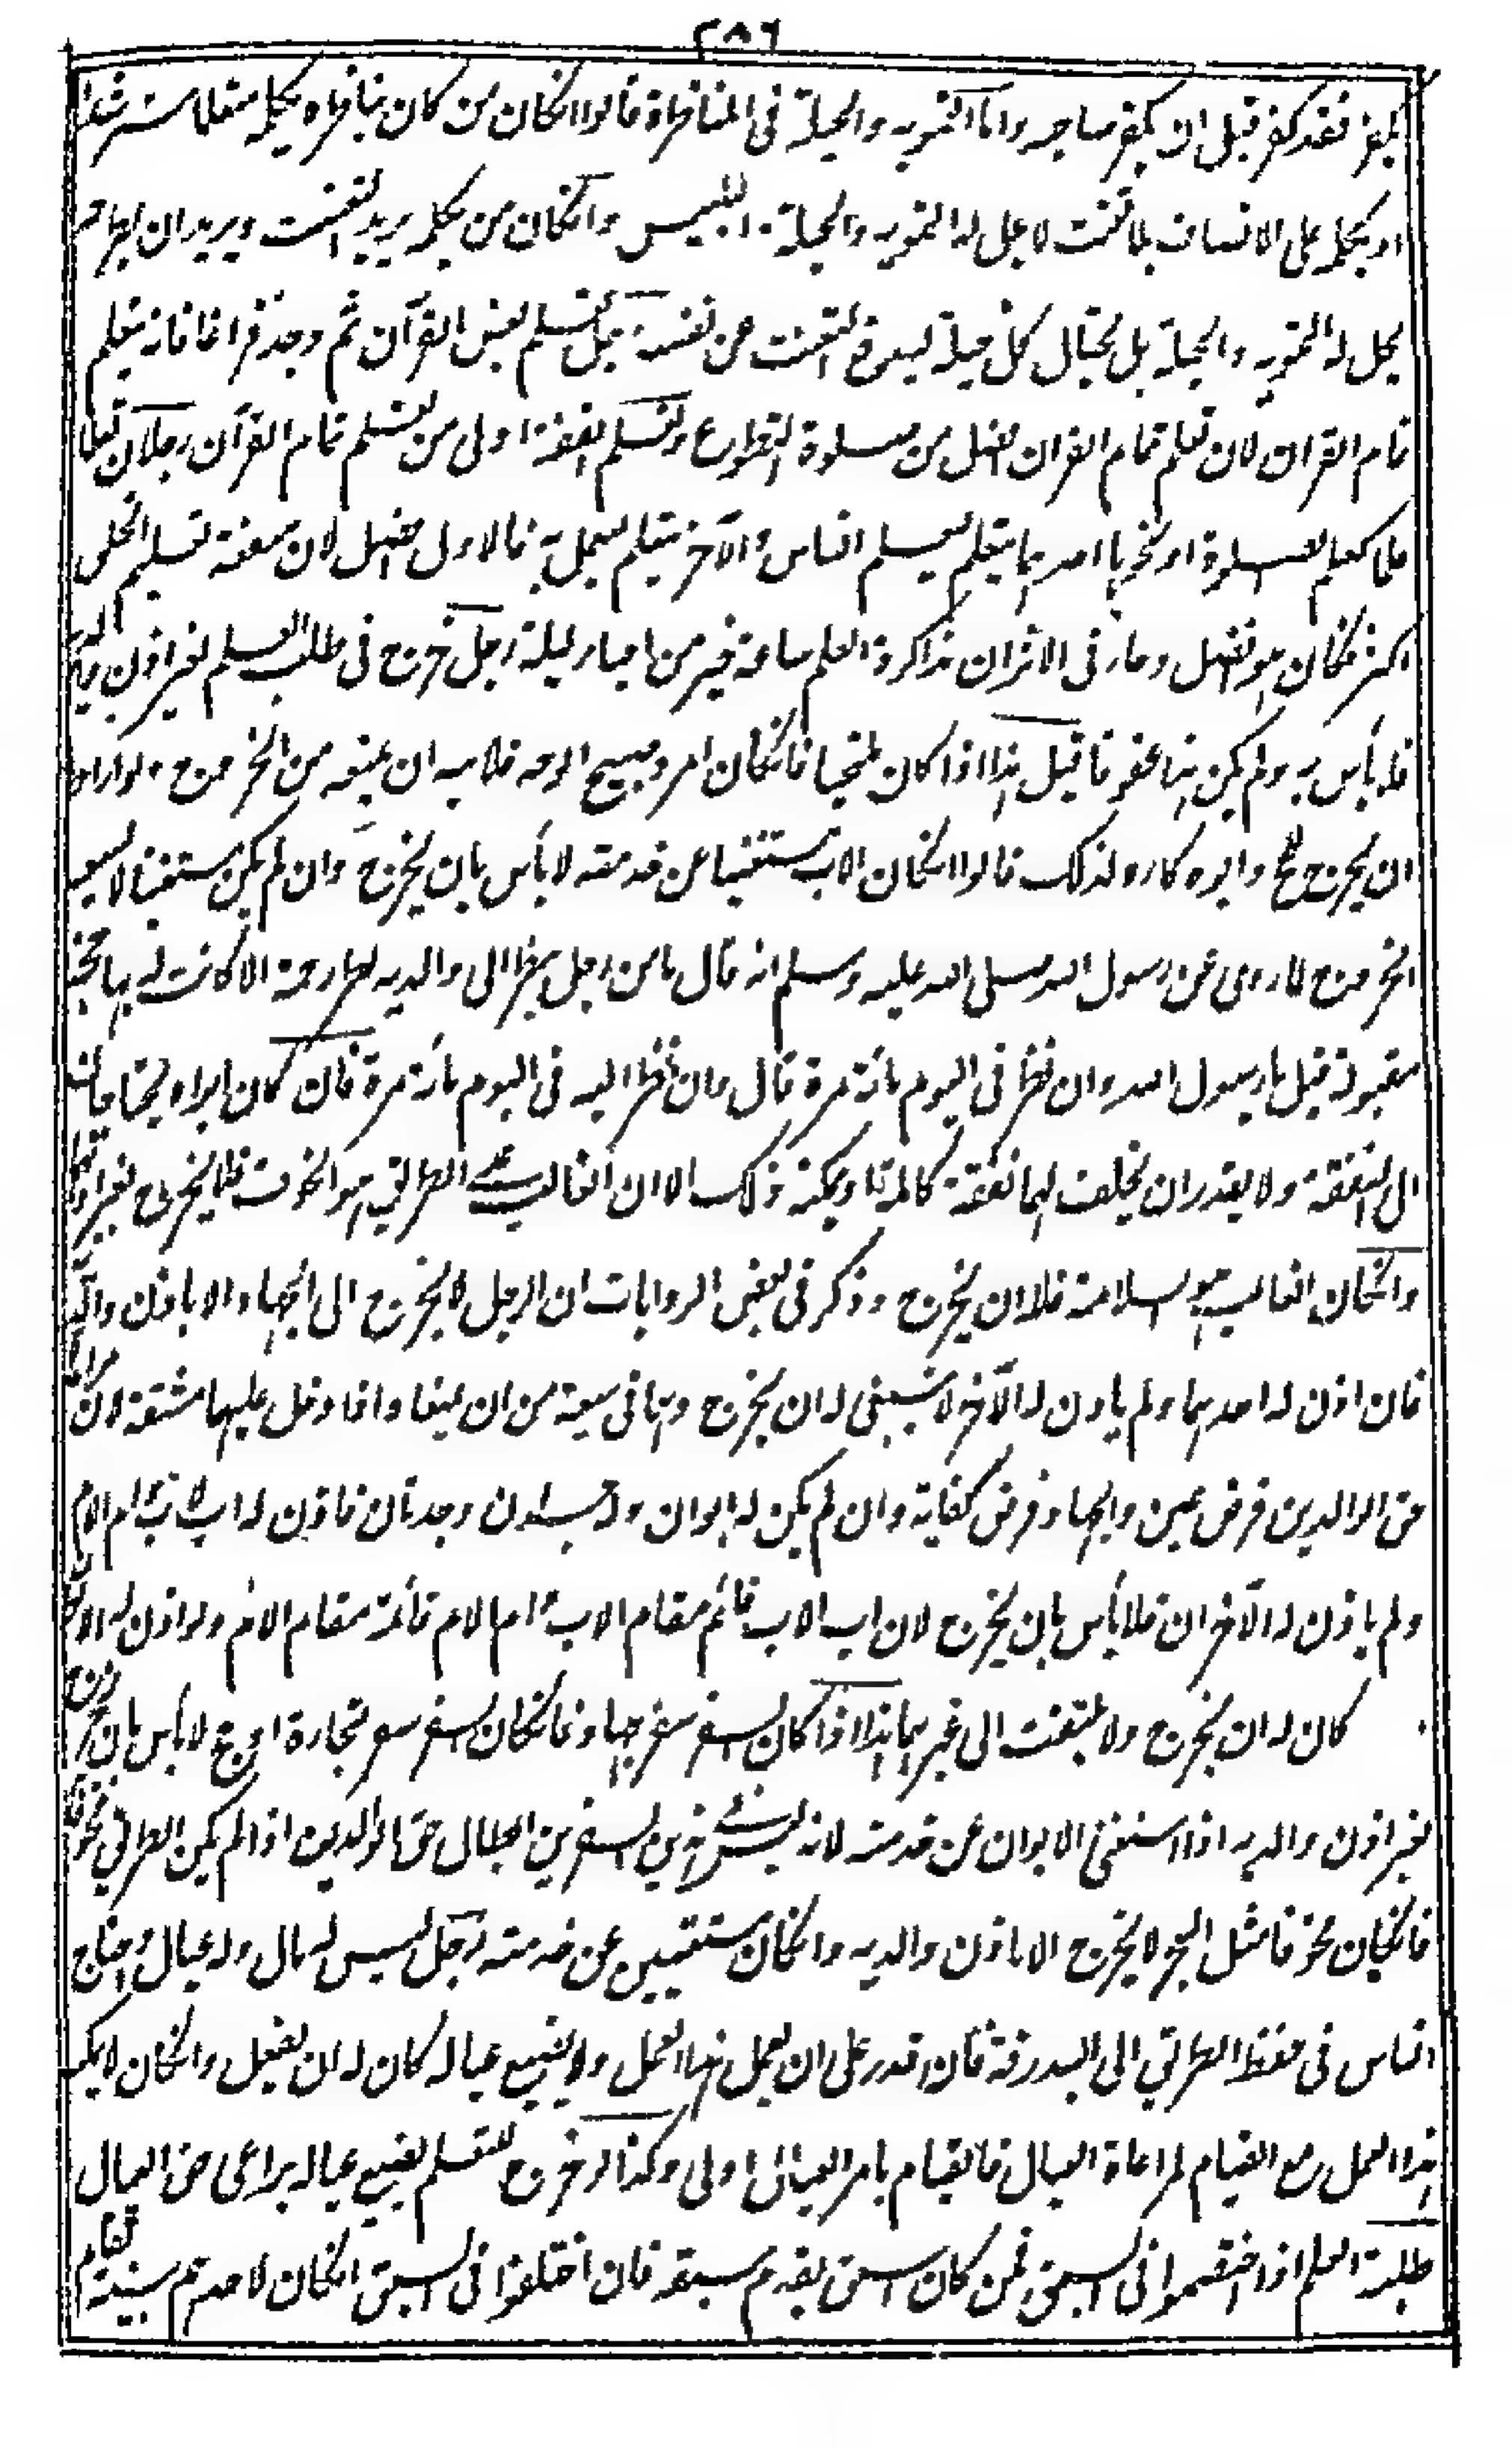 ٢٨٦
يكفر فقد كفر قبل ان يكفر صاحبه واما التمويه والحيلة في المناظرة قالوا انكان من كان يناظره يكلمه متعلما مسترشدا
او يكلمه على الانصاف بلا تعنت لا يحل له التمويه والحيلة والتلبيس وانكان من يكلمه يريد التعنت ويريد ان يطرحه
يحل له التمويه والحيلة بل يحتال كل حيلة ليدفع التعنت عن نفسه رجل تعلم بعض القرآن ثم وجد فراغا فانه يتعلم
تمام القران لان تعلم تمام القران افضل من صلوة التطوع وتعلم الفقه اولى من تعلم تمام القرآن رجلان تعلما
علما كعلم الصلوة او نحوها احدهما يتعلم ليعلم الناس والآخر يتعلم ليعمل به فالاول افضل لان منفعة تعليم الخلق
اكثر فكان هو افضل وجاء في الاثر ان مذاكرة العلم ساعة خير من احياء ليلة رجل خرج في طلب العلم بغير اذن والديه
فلا بأس به ولم يكن هذا عقوقا قيل هذا اذا كان ملتحيا فانكان امرد صبيح الوجه فلابيه ان يمنعه من الخروج ولو اراد
ان يخرج للحج وابوه كاره لذلك قالوا انكان الاب مستغنيا عن خدمته لا بأس بان يخرج وان لم يكن مستغنيا لا يسعه
الخروج لما روي عن رسول الله صلى الله عليه وسلم انه قال ما من رجل ينظر الى والديه نظر رحمة الا كانت له بها حجة
مقبولة قيل يا رسول الله وان نظر في اليوم مائة مرة قال وان نظر اليه في اليوم مائة مرة فان كان ابواه يحتاجان
الى النفقة ولا يقدر ان يخلف لهما نفقة كاملة او يمكنه ذلك الا ان الغالب على الطريق هو الخوف فلا يخرج بغير اذنهما
وانكان الغالب هو السلامة فله ان يخرج وذكر في بعض الروايات ان الرجل لا يخرج الى الجهاد الا باذن والديه
فان اذن له احدهما ولم ياذن له الآخر لا ينبغي له ان يخرج وهما في سعة من ان يمنعا واذا دخل عليهما مشقة لان مراعاة
حق الوالدين فرض عين والجهاد فرض كفاية وان لم يكن له ابوان وله جدان وجدتان فاذن له اب الاب وام الام
ولم ياذن له الآخران فلا بأس بان يخرج لان اب الاب قائم مقام الاب وام الام قائمة مقام الام ولو اذن له الابوان
كان له ان يخرج ولا يلتفت الى غيرهما هذا اذا كان السفر سفر جهاد فانكان السفر سفر تجارة او حج لا بأس بان يخرج
بغير اذن والديه اذا استغنى الابوان عن خدمته لانه ليس في هذين السفرين ابطال حق الوالدين اذا لم يكن الطريق مخوفا
فانكان مخوفا مثل البحر لا يخرج الا باذن والديه وانكان مستغنيين عن خدمته رجل ليس له مال وله عيال واحتاج
الناس في حفظ الطريق الى البدرقة فان قدر على ان يعمل هذا العمل ولا يضيع عياله كان له ان يفعل وانكان لا يمكنه
هذا العمل مع القيام لمراعاة العيال فالقيام بامر العيال اولى وكذا لو خرج للتعلم يضيع عياله يراعي حق العيال
طلبة العلم اذا اختصموا في السبق فمن كان اسبق يقدم سبقه فان اختلفوا في السبق انكان لاحدهم بينة تقام